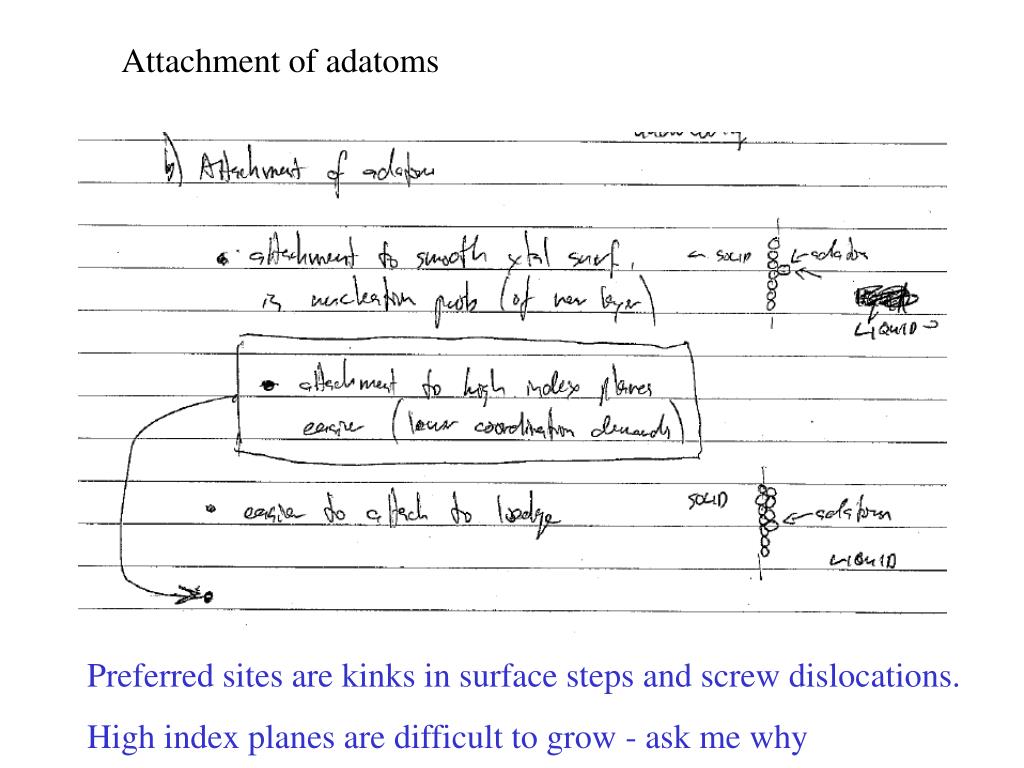 Attachment of adatoms
b) Attachment of adatom
• attachment to smooth xtal surf.
← SOLID
← adatom
is nucleation prob (of new layer)
LIQUID →
• attachment to high index planes
easier (lower coordination demands)
• easier to attach to
SOLID
← adatom
LIQUID
Preferred sites are kinks in surface steps and screw dislocations.
High index planes are difficult to grow - ask me why